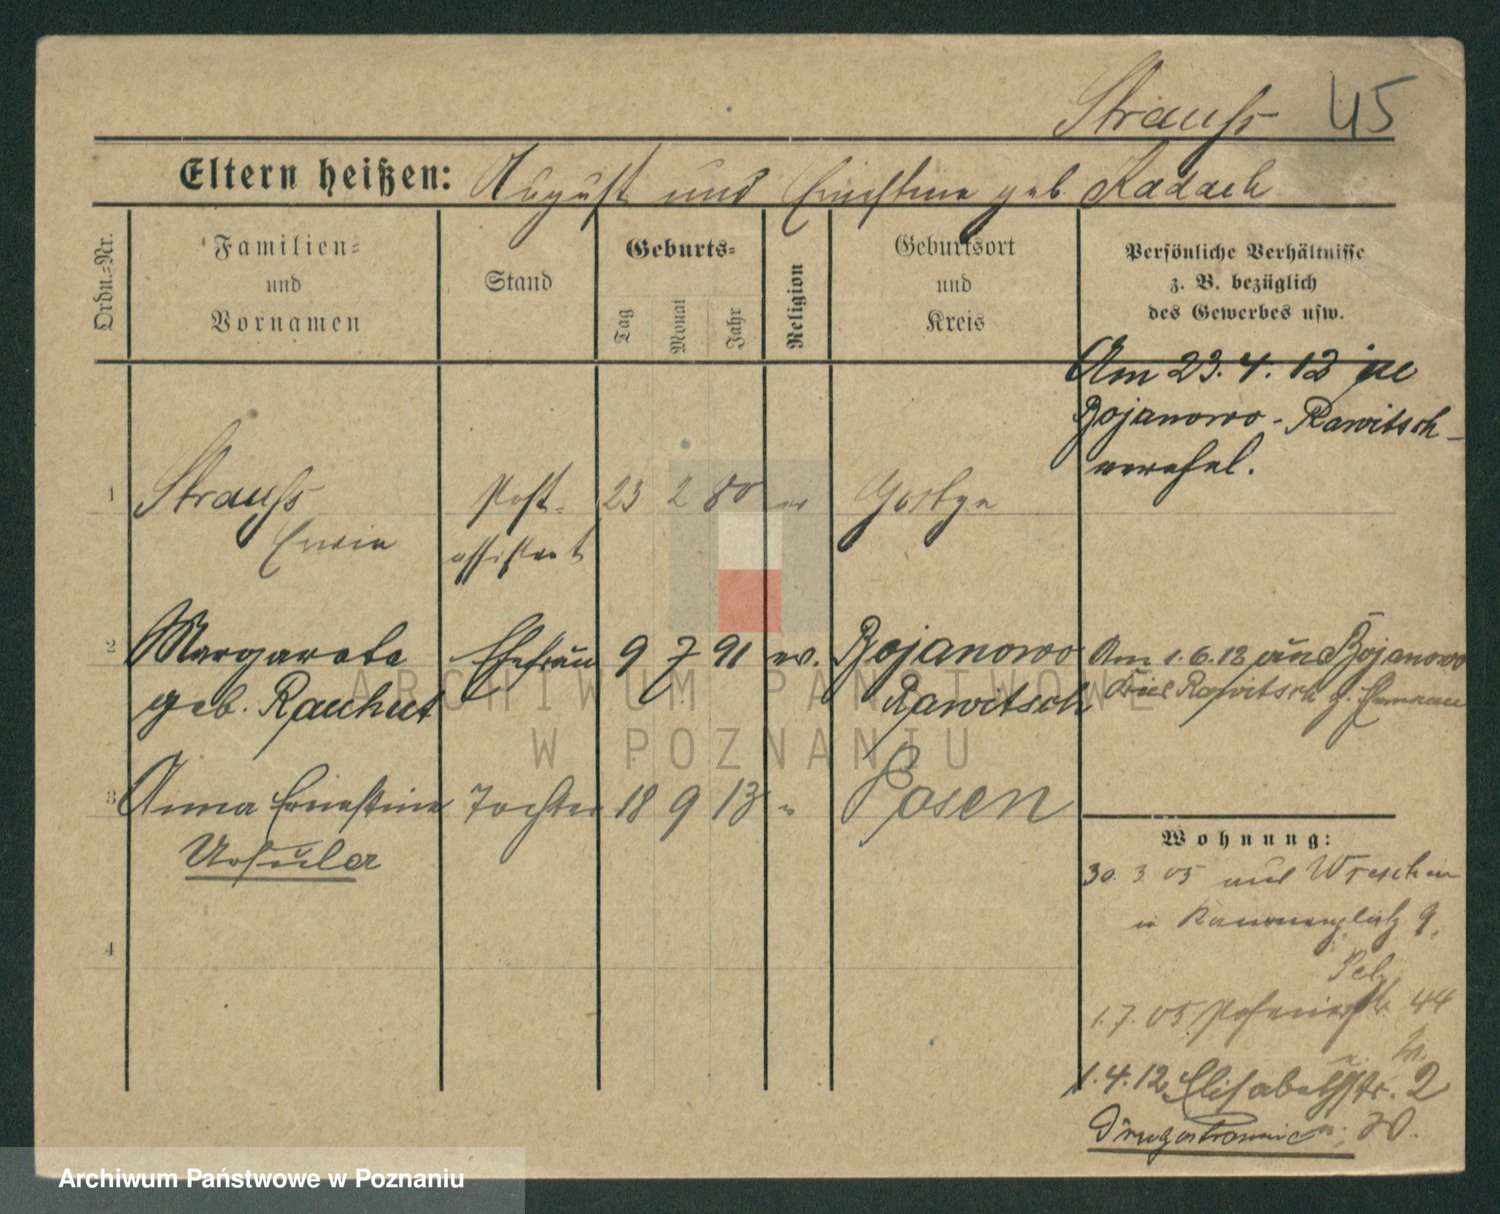 Strauß 45
Eltern heißen: August und Ernestine geb. Kadach
Ordn.=Nr.
Familien=
und
Vornamen
Stand
Geburts=
Tag
Monat
Jahr
Religion
Geburtsort
und
Kreis
Persönliche Verhältnisse
z. B. bezüglich
des Gewerbes usw.
Am 23.4.12 in
Bojanowo - Rawitsch
verehel.
1 Strauß Post- 23 2 80 ev Gostyn
Erwin assistent
2 Margarete Ehefrau 9 7 91 ev. Bojanowo Am 1.6.12 aus Bojanowo
geb. Rauhut Rawitsch Kreis Rawitsch z. Ehemann
3 Anna Ernestine Tochter 18 9 13 " Posen
Ursula
4
Wohnung:
30. 3 05 aus Wreschen
n Kanonenplatz 9.
1.7.05 44
1.4.12 Elisabethstr. 2
20.
ARCHIWUM PAŃSTWOWE
W POZNANIU
Archiwum Państwowe w Poznaniu